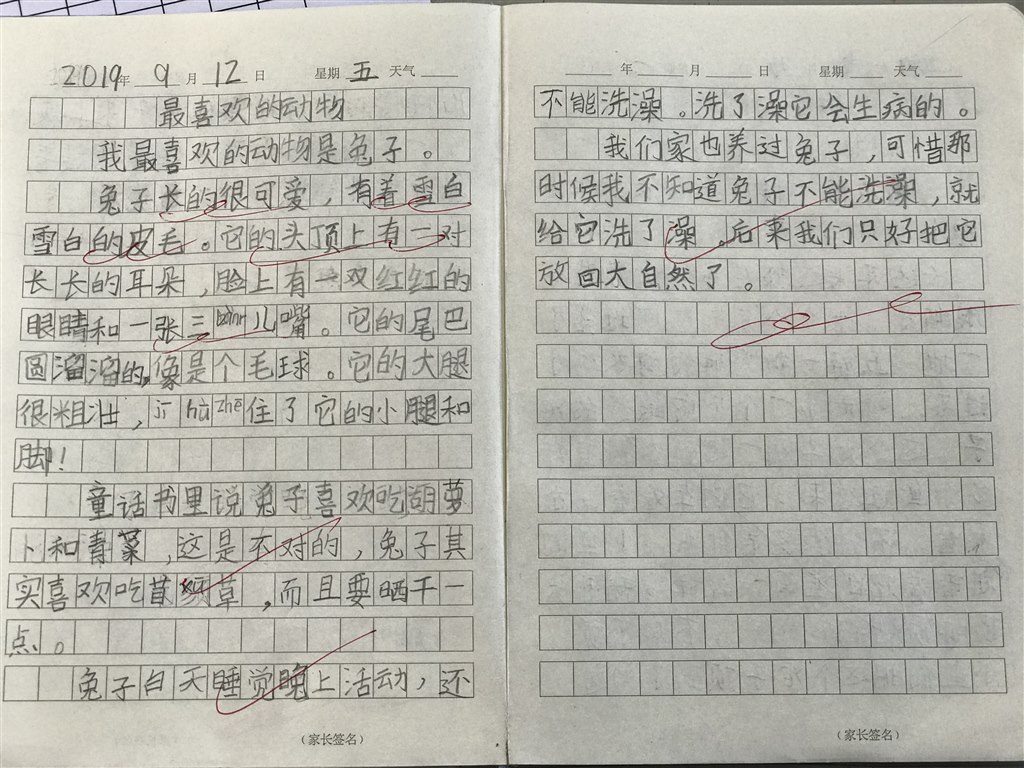 2019年 9月 12日 星期 五 天气
最喜欢的动物
我最喜欢的动物是兔子。
兔子长的很可爱，有着雪白
雪白的皮毛。它的头顶上有一对
长长的耳朵，脸上有一双红红的
眼睛和一张三bànr儿嘴。它的尾巴
圆溜溜的，像是个毛球。它的大腿
很粗壮，jǐ hū zhē住了它的小腿和
脚！
童话书里说兔子喜欢吃胡萝
卜和青菜，这是不对的，兔子其
实喜欢吃草，而且要晒干一
点。
兔子白天睡觉晚上活动，还
（家长签名）
年 月 日 星期 天气
不能洗澡。洗了澡它会生病的。
我们家也养过兔子，可惜那
时候我不知道兔子不能洗澡，就
给它洗了澡，后来我们只好把它
放回大自然了。
（家长签名）